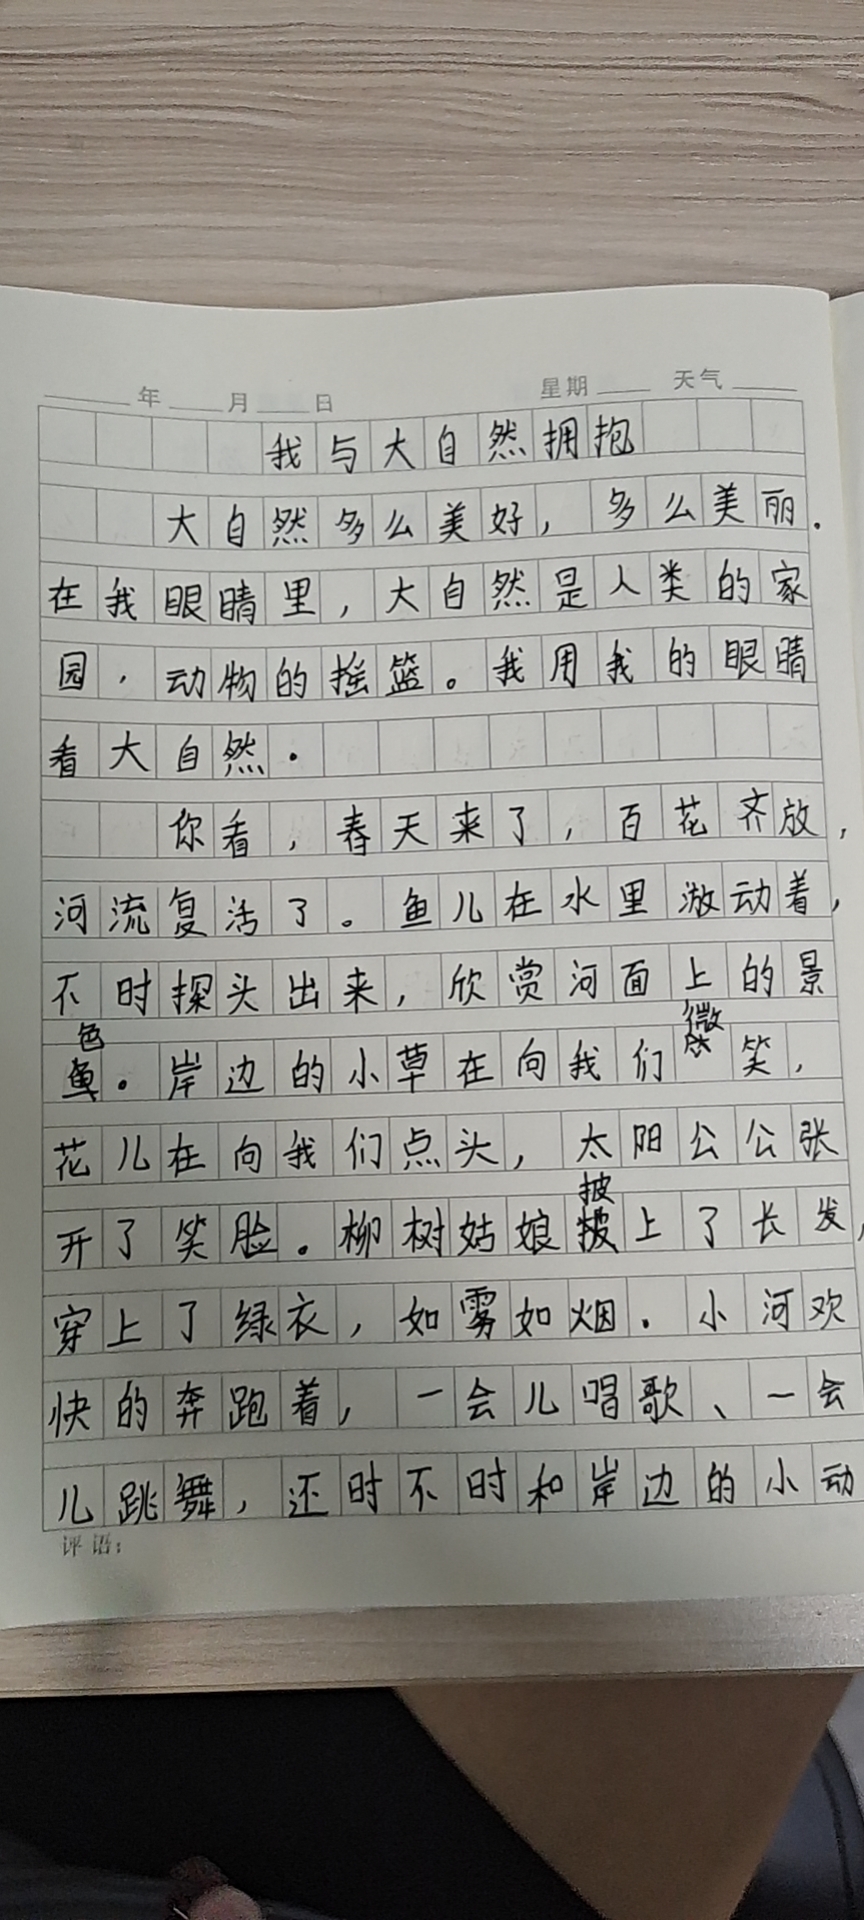 年 月 日 星期 天气
我与大自然拥抱
大自然多么美好，多么美丽.
在我眼睛里，大自然是人类的家
园，动物的摇篮。我用我的眼睛
看大自然.
你看，春天来了，百花齐放，
河流复活了。鱼儿在水里激动着，
不时探头出来，欣赏河面上的景
色。岸边的小草在向我们微笑，
花儿在向我们点头，太阳公公张
开了笑脸。柳树姑娘披上了长发，
穿上了绿衣，如雾如烟.小河欢
快的奔跑着，一会儿唱歌、一会
儿跳舞，还时不时和岸边的小动
评语：